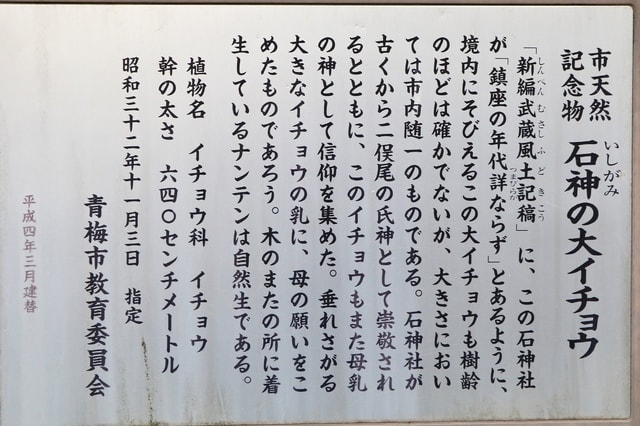 市天然
記念物
石神の大イチョウ
いしがみ
「新編武蔵風土記稿」に、この石神社
しんぺんむさしふどきこう
が「鎮座の年代詳ならず」とあるように、
つまびらか
境内にそびえるこの大イチョウも樹齢
のほどは確かでないが、大きさにおい
ては市内随一のものである。石神社が
古くから二俣尾の氏神として崇敬され
るとともに、このイチョウもまた母乳
の神として信仰を集めた。垂れさがる
大きなイチョウの乳に、母の願いをこ
めたものであろう。木のまたの所に着
生しているナンテンは自然生である。
植物名 イチョウ科 イチョウ
幹の太さ 六四〇センチメートル
昭和三十二年十一月三日 指定
青梅市教育委員会
平成四年三月建替